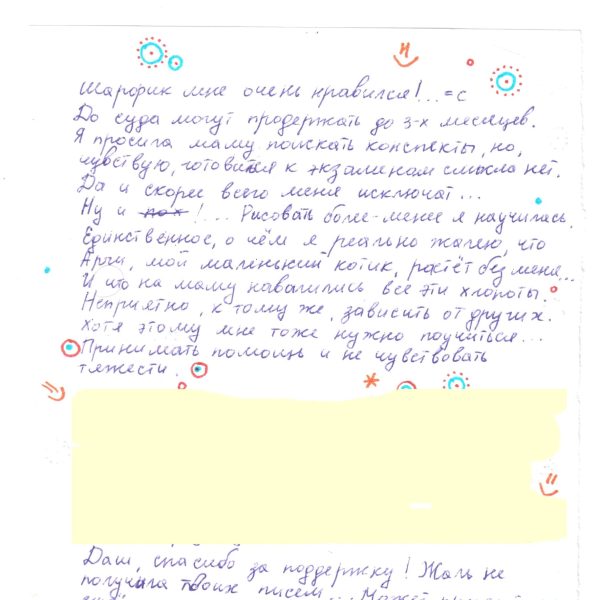 шарфик мне очень нравился!.. =с
До суда могут продержать до 3-х месяцев.
Я просила маму поискать конспекты, но,
чувствую, готовится к экзаменом смысла нет.
Да и скорее всего меня исключат...
Ну и пох!... Рисовать более-менее я научилась.
Единственное, о чём я реально жалею, что
Арчи, мой маленький котик, растёт без меня...
И что на маму навалились все эти хлопоты.
Неприятно, к тому же, зависить от других.
Хотя этому мне тоже нужно поучиться...
Принимать помощь и не чувствовать
тяжести.
Даш, спасибо за поддержку! Жаль не
получила твоих писем... Может